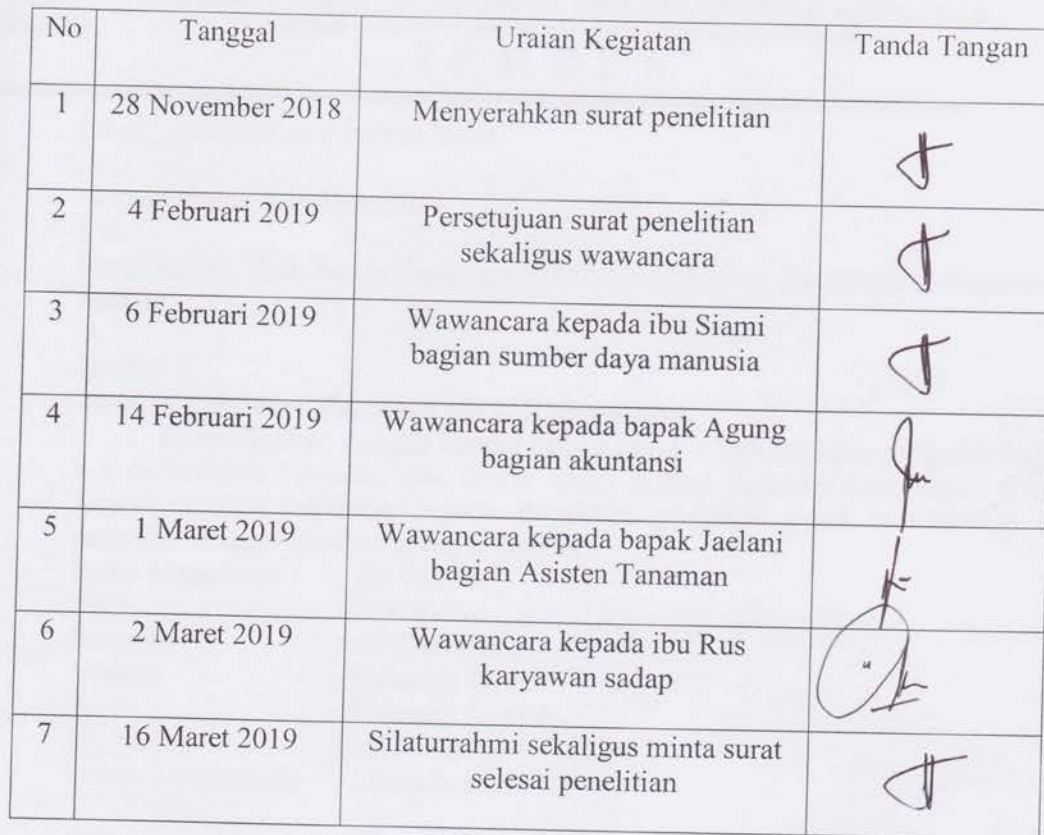 No Tanggal Uraian Kegiatan Tanda Tangan
1 28 November 2018 Menyerahkan surat penelitian
2 4 Februari 2019 Persetujuan surat penelitian
sekaligus wawancara
3 6 Februari 2019 Wawancara kepada ibu Siami
bagian sumber daya manusia
4 14 Februari 2019 Wawancara kepada bapak Agung
bagian akuntansi
5 1 Maret 2019 Wawancara kepada bapak Jaelani
bagian Asisten Tanaman
6 2 Maret 2019 Wawancara kepada ibu Rus
karyawan sadap
7 16 Maret 2019 Silaturrahmi sekaligus minta surat
selesai penelitian